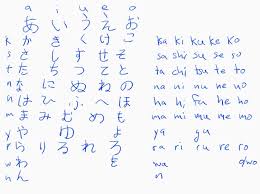 a i u e o
あ い う え お
k か き く け こ ka ki ku ke ko
s さ し す せ そ sa shi su se so
t た ち つ て と ta chi tsu te to
n な に ぬ ね の na ni nu ne no
h は ひ ふ へ ほ ha hi fu he ho
m ま み む め も ma mi mu me mo
y や ゆ よ ya yu
r ら り る れ ろ ra ri ru re ro
w わ を wa
n ん n